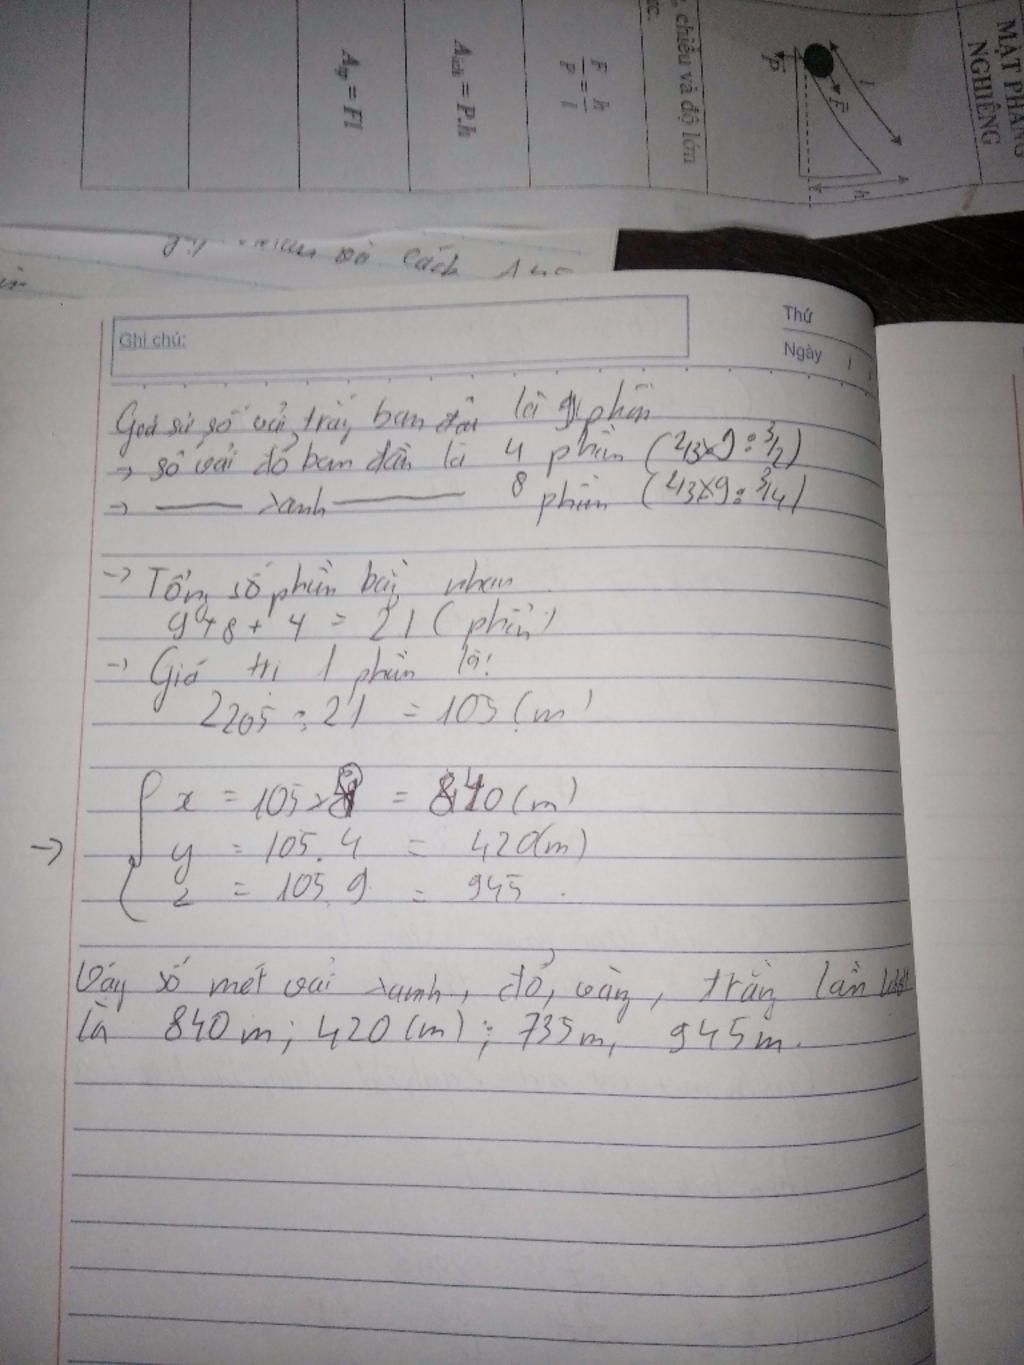 MẶT PHẲNG
NGHIÊNG
l
F
P
h
, chiều và độ lớn
ực.
F/P = h/l
Aích = P.h
Atp = Fl
cách
Ghi chú:
Thứ
Ngày / /
Giả sử số vải trắng ban đầu là 9 phần
→ số vải đỏ ban đầu là 4 phần (
→ —— xanh —— 8 phần (
→ Tổng số phần bằng nhau
9+8+4 = 21 (phần)
→ Giá trị 1 phần là:
2205 : 21 = 105 (m)
x = 105 x 8 = 840 (m)
→ y = 105.4 = 420(m)
z = 105.9 = 945.
Vậy số mét vải xanh, đỏ, vàng, trắng lần lượt
là 840 m; 420 (m); 735m, 945m.